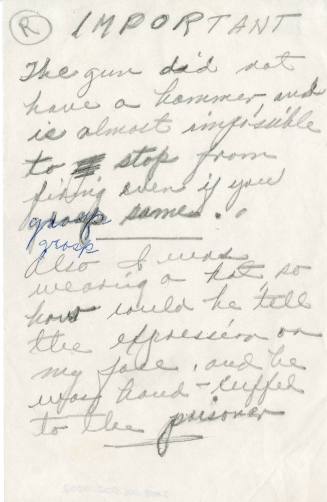 R IMPORTANT
The gun did not
have a hammer, and
is almost impossible
to stop from
firing even if you
grasp same..
grasp
Also I was
wearing a hat, so
how would he tell
the expression on
my face, and he
was hand-cuffed
to the prisoner